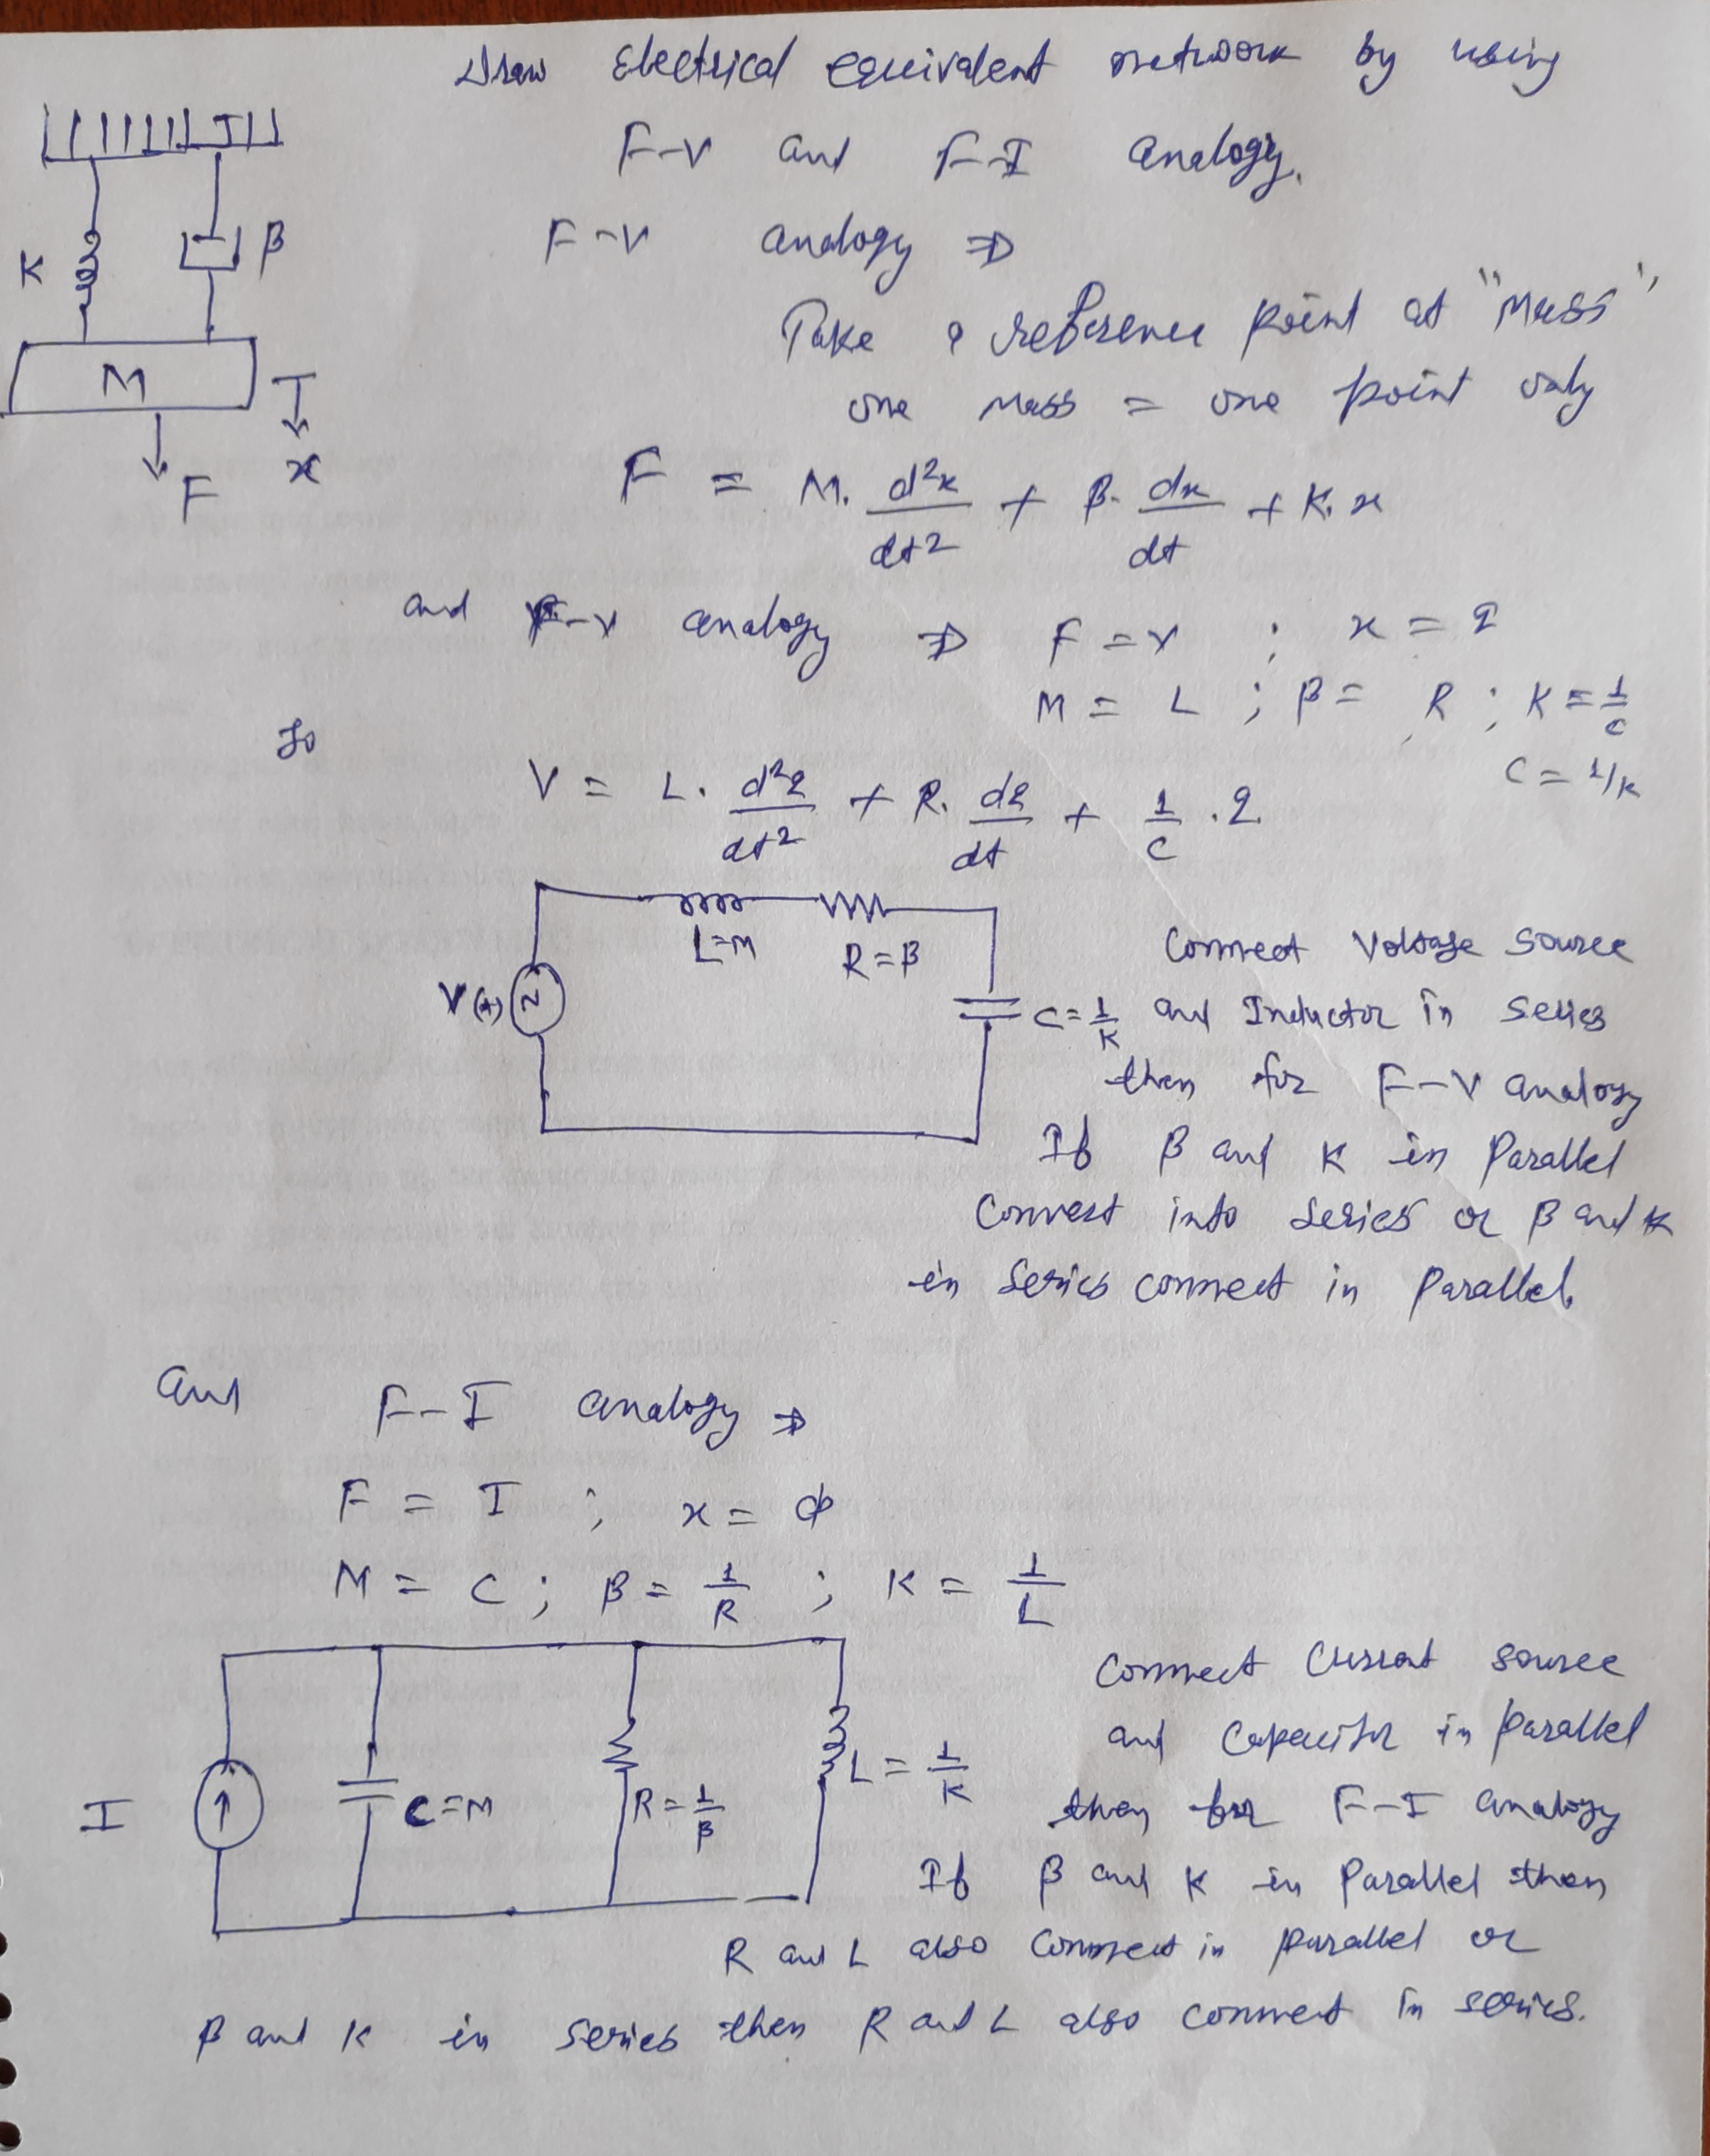 Draw Electrical equivalent network by using
F-V and F-I analogy.
K
β
M
F
x
F-V analogy ⇒
Take a reference point at "Mass"
one Mass = one point only
F = M. d²x/dt² + β. dx/dt + K. x
and F-V analogy ⇒ F = V ; x = q
M = L ; β = R ; K = 1/C
C = 1/K
So
V = L. d²q/dt² + R. dq/dt + 1/C . q
V(t)
L=M
R=β
C=1/K
Connect Voltage source
and Inductor in series
then for F-V analogy
If β and K in Parallel
Convert into series or β and K
in series connect in Parallel.
and F-I analogy ⇒
F = I ; x = ϕ
M = C ; β = 1/R ; K = 1/L
I
C=M
R=1/β
L = 1/K
Connect Current source
and Capacitor in parallel
then for F-I analogy
If β and K in Parallel then
R and L also Connect in parallel or
β and K in series then R and L also connect in series.